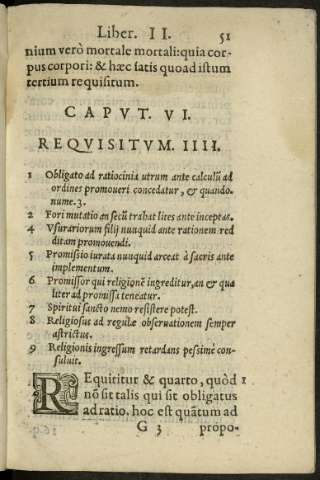 Liber. II. 51
nium verò mortale mortali: quia cor-
pus corpori: & hæc satis quoad istum
tertium requisitum.
CAPVT. VI.
REQVISITVM. IIII.
1 Obligato ad ratiocinia utrum ante calculũ ad
ordines promoueri concedatur, & quando.
nume. 3.
2 Fori mutatio an secũ trahat lites ante inceptas.
4 Vsurariorum filij nunquid ante rationem red
ditam promouendi.
5 Promissio iurata nunquid arceat à sacris ante
implementum.
6 Promissor qui religionẽ ingreditur, an & qua
liter ad promissa teneatur.
7 Spiritui sancto nemo resistere potest.
8 Religiosus ad regulæ obseruationem semper
astrictus.
9 Religionis ingressum retardans pessimè con-
suluit.
REquiritur & quarto, quòd 1
nõ sit talis qui sit obligatus
ad ratio. hoc est quãtum ad
G 3 propo-